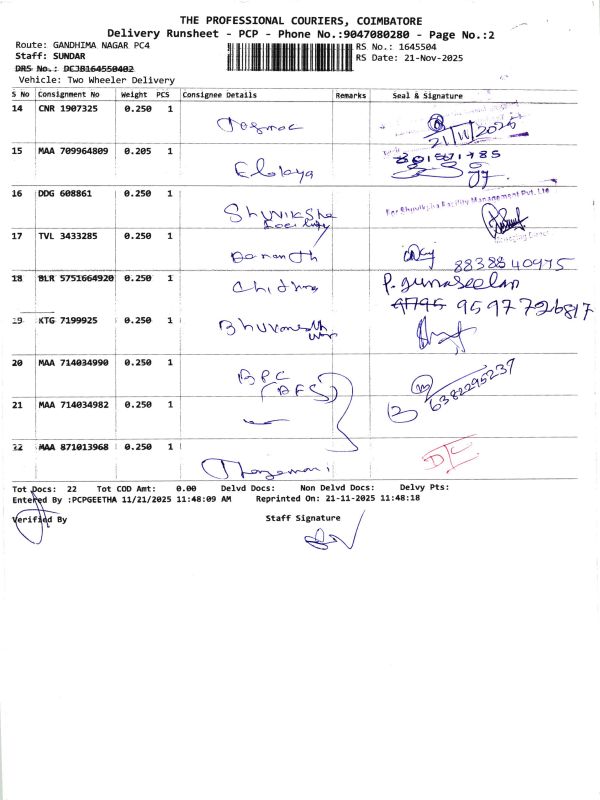 THE PROFESSIONAL COURIERS, COIMBATORE
Delivery Runsheet - PCP - Phone No.:9047080280 - Page No.:2
Route: GANDHIMA NAGAR PC4 RS No.: 1645504
Staff: SUNDAR RS Date: 21-Nov-2025
DRS No.: DCJB164550402
Vehicle: Two Wheeler Delivery
S No Consignment No Weight PCS Consignee Details Remarks Seal & Signature
14 CNR 1907325 0.250 1 21/11/2025
15 MAA 709964809 0.205 1
16 DDG 608861 0.250 1 For Shuviksha Facility Management Pvt. Ltd
17 TVL 3433285 0.250 1 8838840975
18 BLR 5751664920 0.250 1 P. Gunaseelan
9597726817
19 KTG 7199925 0.250 1
20 MAA 714034990 0.250 1 BPC
(BFS) 6382295237
21 MAA 714034982 0.250 1
22 MAA 871013968 0.250 1 D/C
Tot Docs: 22 Tot COD Amt: 0.00 Delvd Docs: Non Delvd Docs: Delvy Pts:
Entered By :PCPGEETHA 11/21/2025 11:48:09 AM Reprinted On: 21-11-2025 11:48:18
Verified By Staff Signature